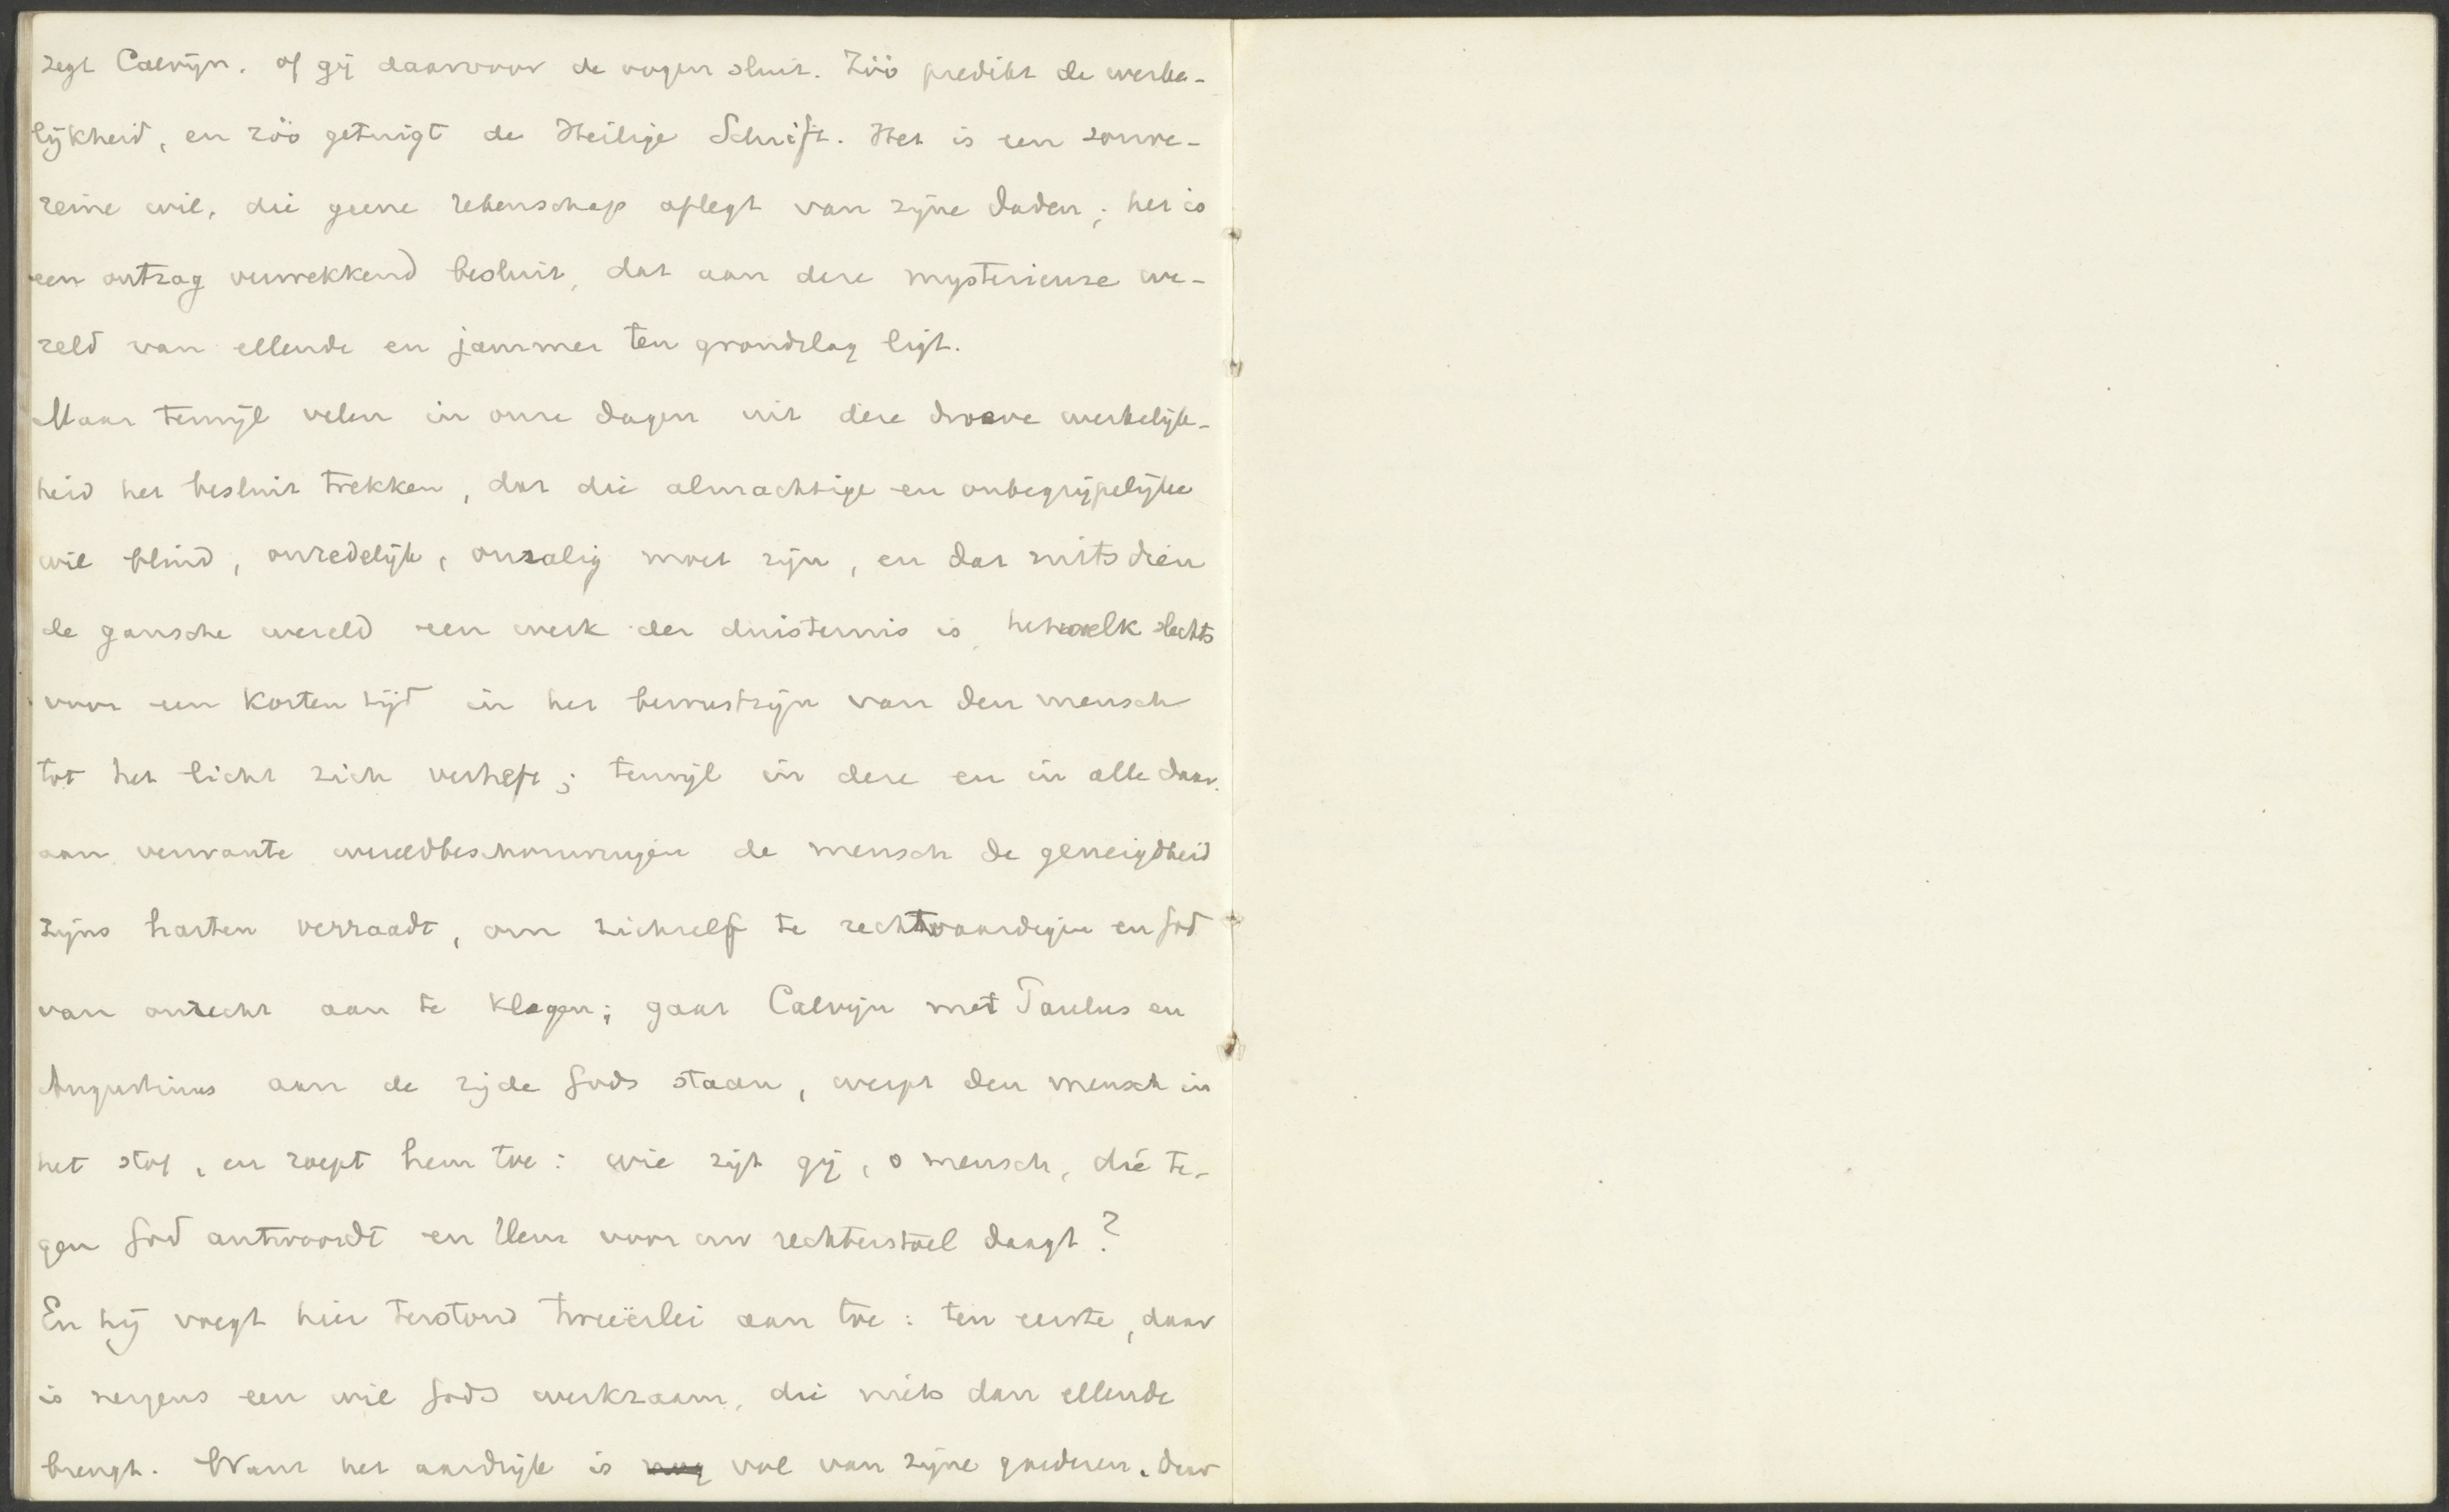 zegt Calvijn, of gij daarvoor de oogen sluit. Zóó predikt de werke-
lijkheid, en zóó getuigt de Heilige Schrift. Het is een souve-
reine wil, die geene rekenschap aflegt van zijne daden; het is
een ontzag verwekkend besluit, dat aan deze mysterieuze we-
reld van ellende en jammer ten grondslag ligt.
Maar terwijl velen in onze dagen uit deze droeve werkelijk-
heid het besluit trekken, dat die almachtige en onbegrijpelijke
wil blind, onredelijk, onzalig moet zijn, en dat mitsdien
de gansche wereld een werk der duisternis is, hetwelk slechts
voor een korten tijd in het bewustzijn van den mensch
tot het licht zich verheft; terwijl in deze en in alle daar-
aan verwante wereldbeschouwingen de mensch de geneigdheid
zijns harten verraadt, om zichzelf te rechtvaardigen en God
van onrecht aan te klagen; gaat Calvijn met Paulus en
Augustinus aan de zijde Gods staan, werpt den mensch in
het stof, en roept hem toe: wie zijt gij, o mensch, die te-
gen God antwoordt en Hem voor uw rechterstoel daagt?
En hij voegt hier terstond tweeërlei aan toe: ten eerste, daar
is nergens een wil Gods werkzaam, die niets dan ellende
brengt. Want het aardrijk is vol van zijne goederen. Daar